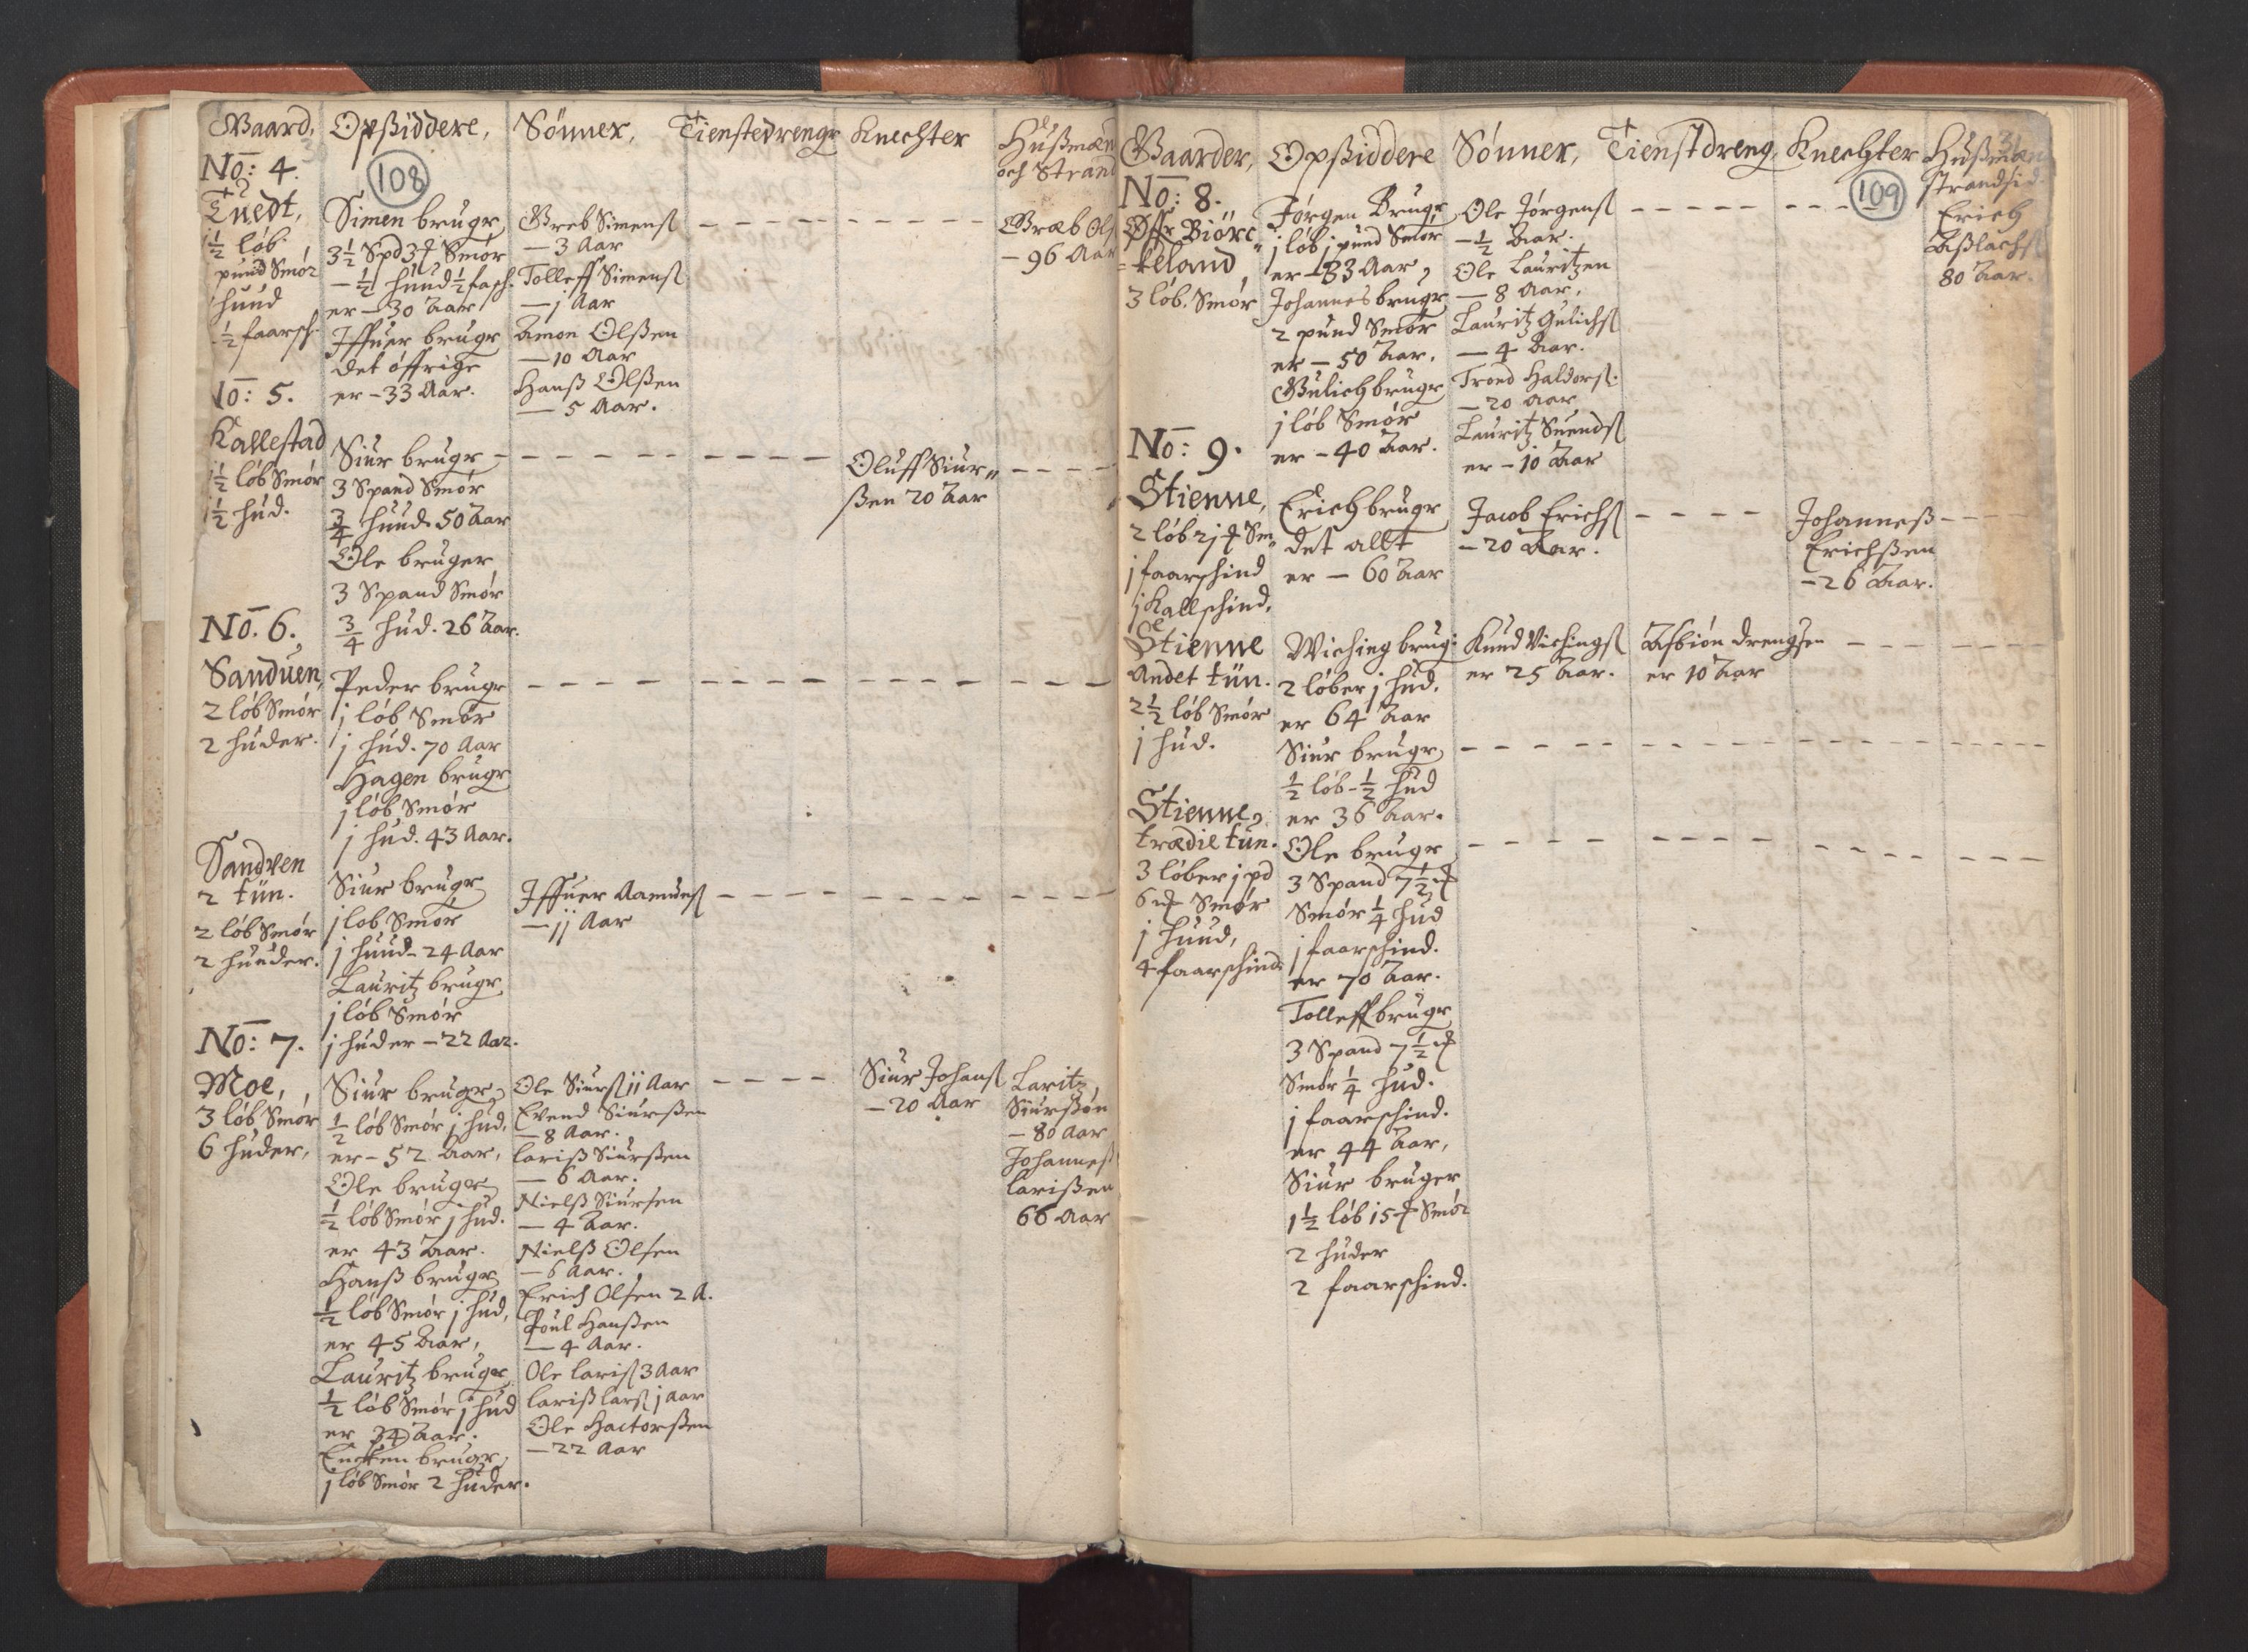 Gaard, Opsiddere, Sönner, Tienstedrenge Knechter Hußmæn
och Strand
108
No: 4.
Tuedt,
1½ löb
pund Smör
huud
½ faarsch.
Simen bruger
3½ Spd 3 ℔ Smör
- ½ huud ½ fasch.
er - 30 Aar
Iffuer bruger
det öffrige
er - 33 Aar.
Greb Simens.
- 3 Aar
Tolleff Simens.
- j Aar
Amon Olßen
- 10 Aar
Hanß Olßen
- 5 Aar.
Græb Ols
- 96 Aar
No: 5.
Kallestad
1½ löb Smör
1½ hud.
Siur bruger
3 Spand Smör
¾ huud. 50 Aar
Ole bruger
3 Spand Smör
¾ hud. 26 Aar.
Oluff Siur„
ßen 20 Aar
No. 6.
Sanduen,
2 löb Smör
2 huder.
Peder bruger
j löb Smör
j hud. 70 Aar
Hagen bruger
j löb Smör
j hud. 43 Aar.
Sandven
2 tün.
2 löb Smör
2 huuder.
Siur bruger
j löb Smör
j huud - 24 Aar
Lauritz bruger
j löb Smör
j huder - 22 Aar.
Iffuer Aamuns.
- jj Aar
No: 7.
Moe,
3 löb Smör
6 huder,
Siur bruger
½ löb Smör j hud,
er - 52 Aar,
Ole bruger
½ löb Smör j hud.
er 43 Aar.
Hanß bruger
½ löb Smör j hud,
er 45 Aar,
Lauritz bruger
½ löb Smör j hud
er 34 Aar.
Encken bruger
j löb Smör 2 huder.
Ole Siurs. jj Aar
Evend Siurßen
- 8 Aar.
lariß Siurßen
- 6 Aar.
Nielß Siursen
- 4 Aar.
Nielß Olsen
- 6 Aar.
Erich Olsen 2 A.
Poul Hanßen
- 4 Aar.
Ole laris. 3 Aar
lariß lars. j Aar
Ole Hactorßen
- 22 Aar
Siur Johans.
- 20 Aar
Laritz
Siurßön
- 80 Aar
Johanneß
larißen
66 Aar
Gaarder, Opsiddere Sönner, Tienstdreng, Knechter Hußmæn
strandsid.
109
No: 8.
Öffr Biörc„
=keland,
3 löb. Smör
Jörgen Bruger
j löb j pund Smör
er - 33 Aar,
Johannes bruger
2 pund Smör
er - 50 Aar.
Gulich bruger
j löb Smör
er - 40 Aar.
Ole Jörgens.
- ½ Aar.
Ole Lauritzen
- 8 Aar,
Lauritz Gulichs.
- 4 Aar.
Trond Haldors.
- 20 Aar
Lauritz Suends.
er - 10 Aar
Erich
Aßlachs.
80 Aar.
No: 9.
Stienne,
2 löb 2j ℔ Sm„
j faarschind
j Kallschind,
Erich bruger
det allt
er - 60 Aar
Jacob Erichs.
- 20 Aar.
Johanneß
Erichßen
- 26 Aar.
Stienne
Andet tün.
2½ löb Smör
j hud.
Wiching brug:
2 löber j hud,
er 64 Aar
Siur bruger
½ löb - ½ hud
er 36 Aar.
Knud Vichings.
er 25 Aar.
Asbiön drengsen
er 10 Aar
Stienne,
trædie tün.
3 löber j pd
6 ℔ Smör
j huud,
4 faarschind.
Ole bruger
3 Spand 7½ ℔
Smör ¼ hud
j faarschind.
er 70 Aar.
Tolleff bruger
3 Spand 7½ ℔
Smör ¼ hud.
j faarschind.
er 44 Aar,
Siur bruger
1½ löb 15 ℔ Smör
2 huder
2 faarschind.